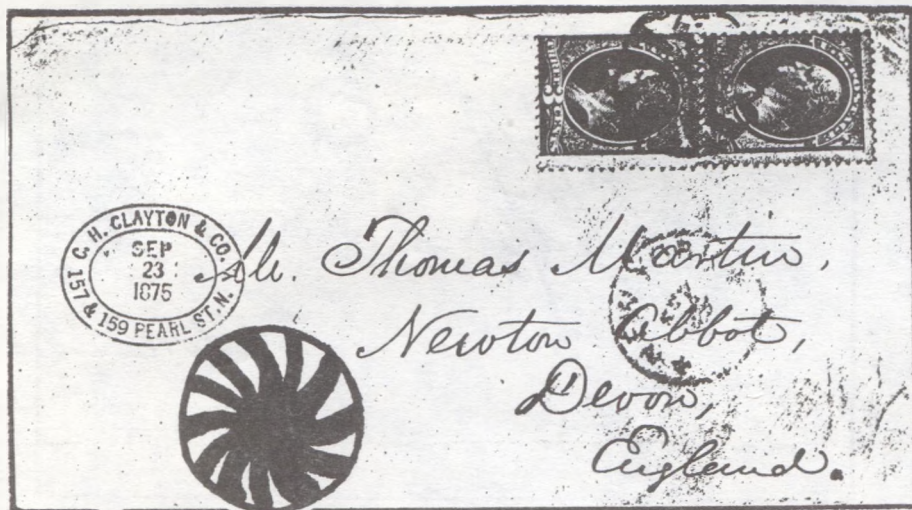 C. H. CLAYTON & CO.
SEP
23
1875
157 & 159 PEARL ST. N.
Mr. Thomas Martin,
Newton Abbot,
Devon,
England.